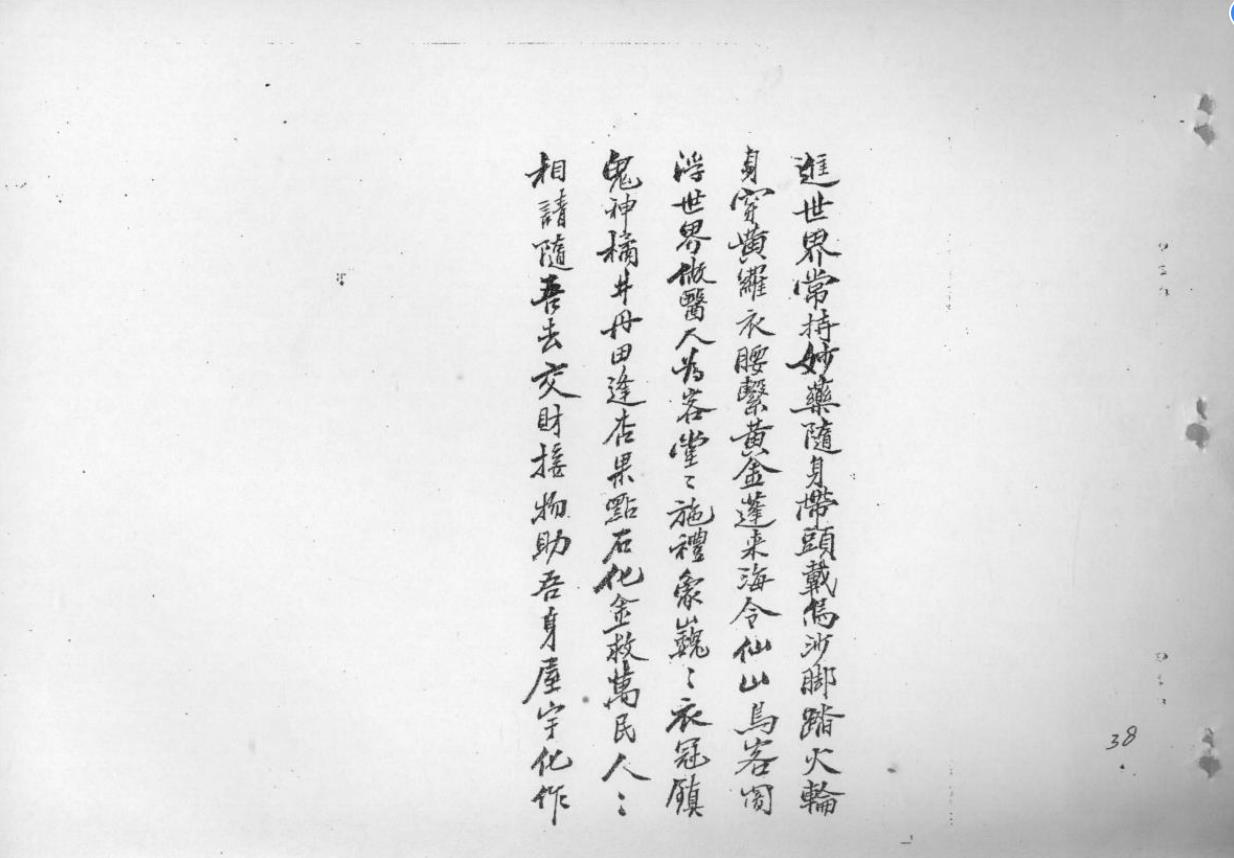 進世界常持妙藥隨身帶頭戴烏沙脚踏火輪
身穿黃羅衣腰繫黃金蓬来海令仙山烏客閙
浮世界做醫人為客堂〻施禮象巍〻衣冠鎮
鬼神橘井丹田逢杏果點石化金救萬民人〻
相請隨吾去交財接物助吾身屋宇化作
38